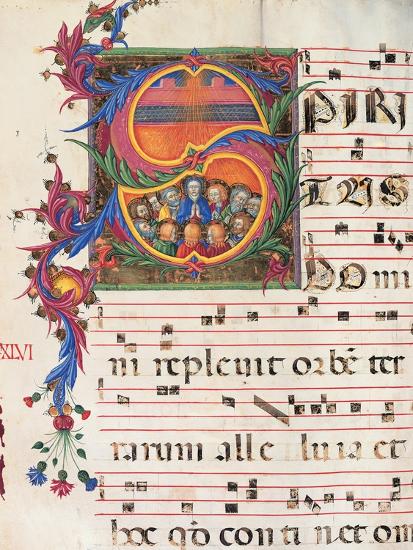 XLVI
SPIRI
TUS
Domi
ni repleuit orbē ter
rarum alle luia et
hoc qd̄ conti net om